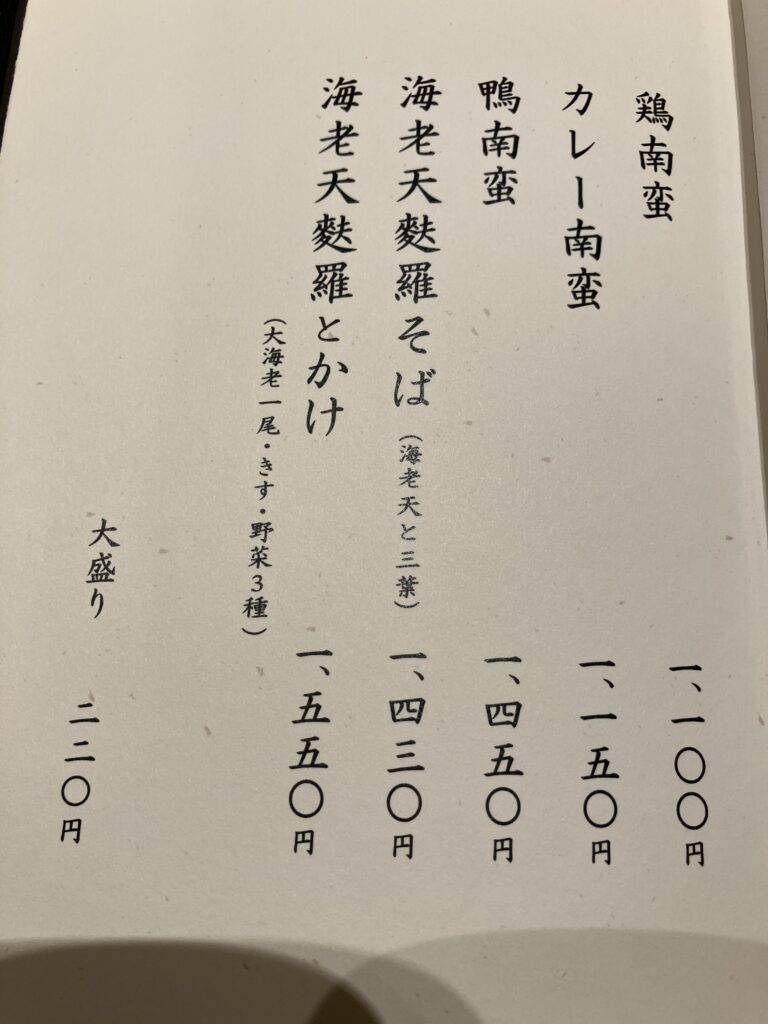 鶏南蛮 一、一〇〇円
カレー南蛮 一、一五〇円
鴨南蛮 一、四五〇円
海老天麩羅そば（海老天と三葉） 一、四三〇円
海老天麩羅とかけ 一、五五〇円
（大海老一尾・きす・野菜３種）
大盛り 二二〇円